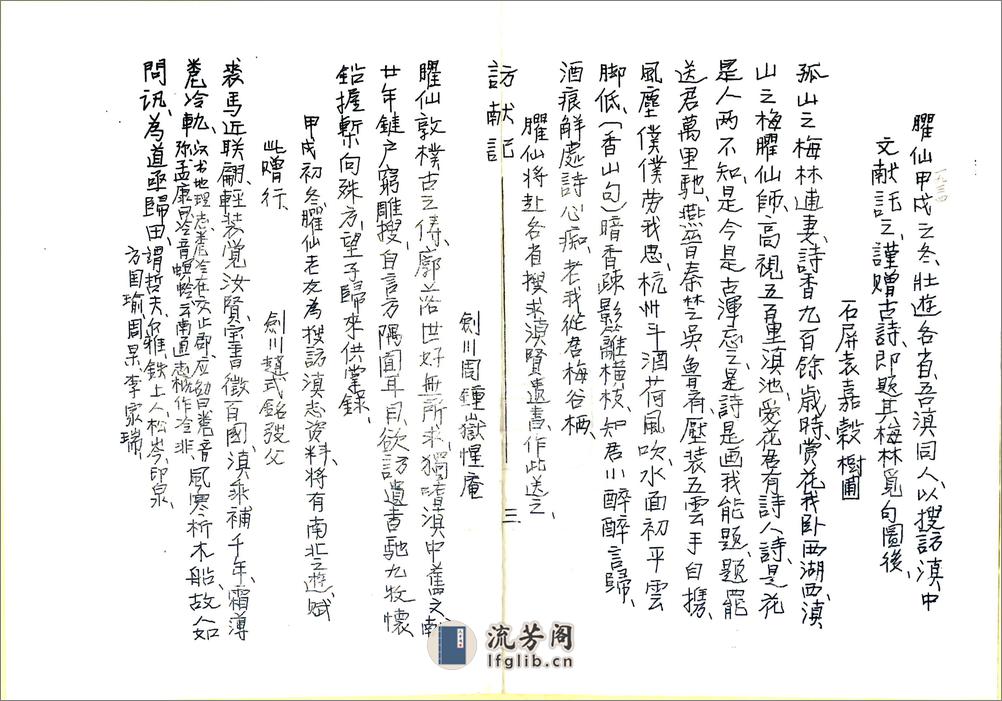 臞仙甲戌之冬、壯遊各省、吾滇同人、以搜訪滇中
一九三四
文献託之、謹赠古詩、即題其梅林覓句圖後、
石屏袁嘉穀樹圃
孤山之梅林逋妻、詩香九百餘歲時、賞花我卧西湖西、滇
山之梅臞仙師、高視五百里滇池、愛花君有詩人詩、是花
是人两不知、是今是古渾忘之、是詩是画我能題、題罷
送君萬里馳、燕晉秦楚吳魯齊、壓装五雲手自携、
風塵僕僕劳我思、杭州斗酒荷風吹、水面初平雲
脚低、(香山句)暗香疎影籬橫枝、知君小醉醉言歸、
酒痕解處詩心痴、老我從君梅谷栖、
臞仙将赴各省搜求滇賢遺書、作此送之、
訪献記
三
劍川周鍾嶽惺庵
臞仙敦樸古之儔、廓落世好無所求、獨嗜滇中舊文献
廿年鍵户窮雕搜、自言方隅囿耳目、欲訪遺書馳九牧、懷
鉛握槧向殊方、望子歸來供掌錄、
甲戌初冬、臞仙老友為搜訪滇志資料、將有南北之遊、赋
此贈行、
劍川趙式銘弢父
裘馬近联翩、輕装觉汝賢、家書徵百國、滇乘補千年、霜薄
卷冷軌、风寒析木船、故人如
問訊、為道亟歸田、謂哲夫、尔雅、鉄上人、松岑、印泉、
方国瑜、周杲、李家瑞、